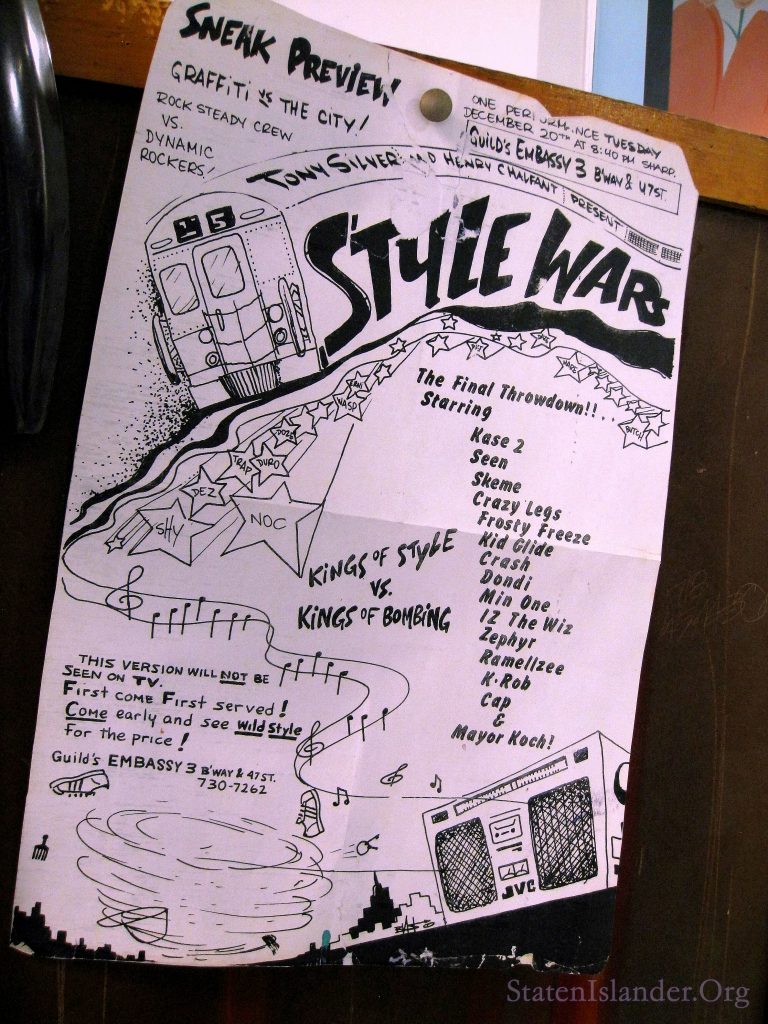 SNEAK PREVIEW
GRAFFITI VS THE CITY!
ROCK STEADY CREW
VS.
DYNAMIC
ROCKERS!
ONE PERFORMANCE TUESDAY
DECEMBER 20TH AT 8:40 PM SHARP.
GUILD'S EMBASSY 3 B'WAY & 47ST.
TONY SILVER AND HENRY CHALFANT PRESENT
STYLE WARS
The Final Throwdown!!...
Starring
Kase 2
Seen
Skeme
Crazy Legs
Frosty Freeze
Kid Glide
Crash
Dondi
Min One
IZ The Wiz
Zephyr
Ramellzee
K·Rob
Cap
&
Mayor Koch!
NASP
DURO
TRAP
DEZ
SHY
NOC
BUTCH
KINGS OF STYLE
VS.
KINGS OF BOMBING
THIS VERSION WILL NOT BE
SEEN ON TV.
First come First served!
Come early and see Wild Style
for the price!
Guild's EMBASSY 3 B'WAY & 47ST.
730-7262
JVC
StatenIslander.Org